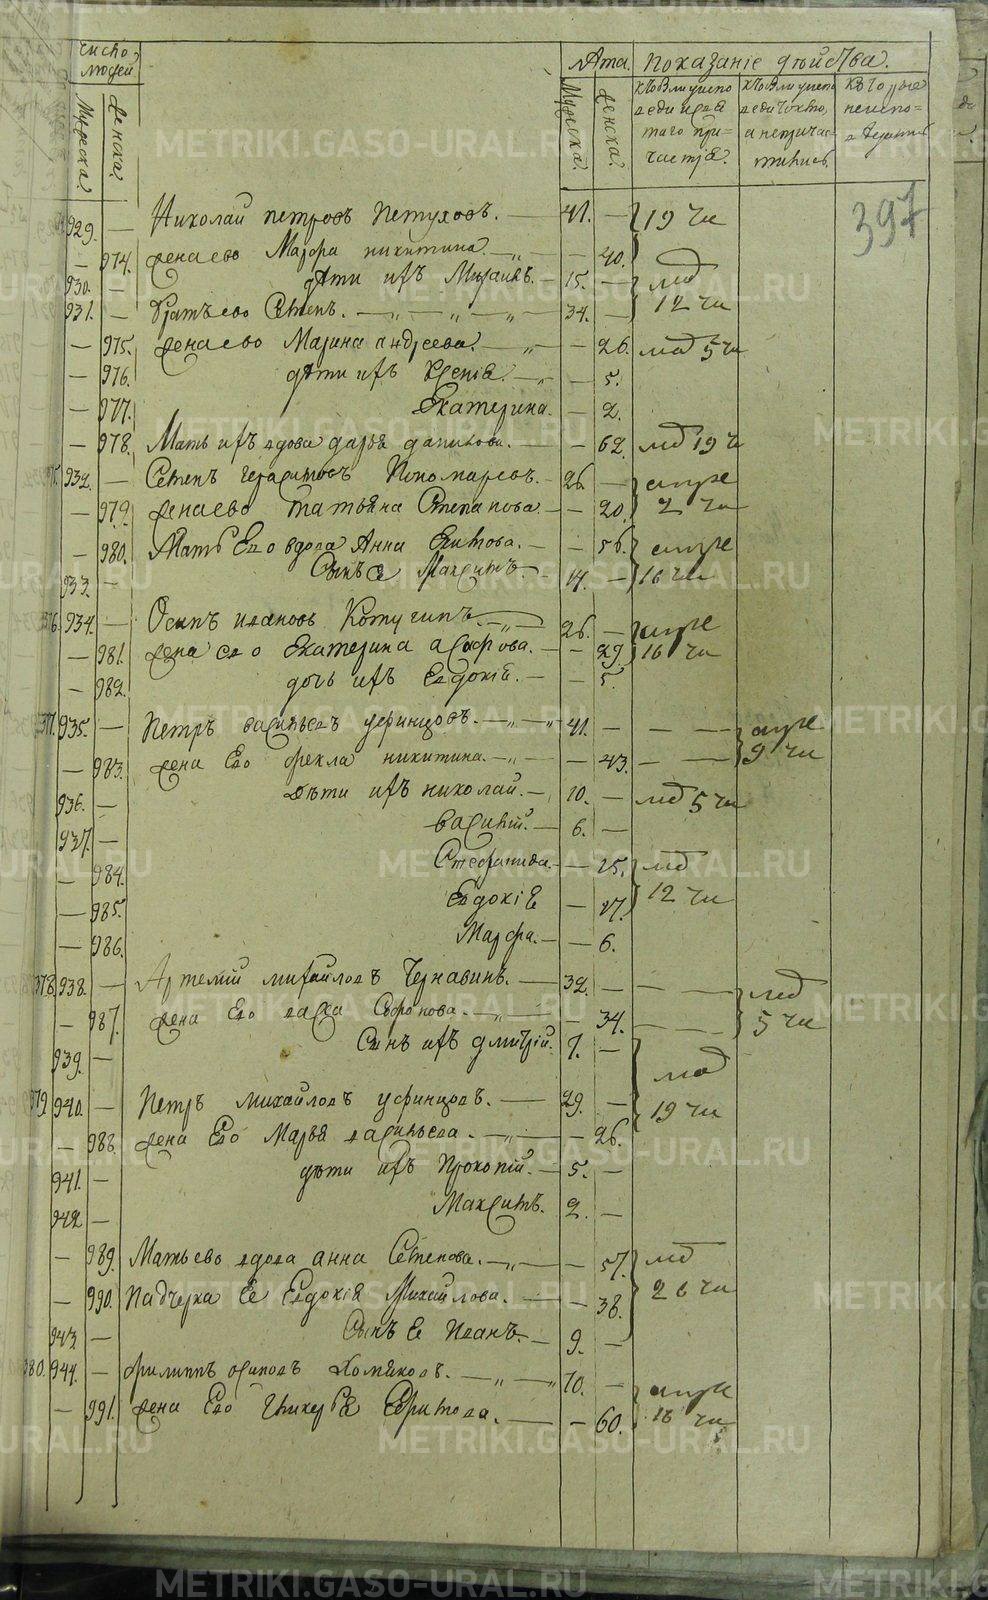 число людей
Мужеска. женска.
Лѣта. Показанiе дѣйства.
Мужеска. женска.
кто были у исповеди и святаго причастiя.
кто были у исповеди токмо, а не причастились.
которые не исповедались
397
929. — Николай петровъ Петуховъ. — 41. — 19 чи
— 974. жена ево Марфа никитина — 40.
930. — дѣти ихъ Михаилъ. — 15. — мд 12 чи
931. — братъ ево Степъ. — 34. —
— 975. жена ево Марина андреева. — 26. мд 5 чи
— 976. дѣти ихъ Ксенiя. — 5.
— 977. Екатерина. — 2.
— 978. Мать ихъ вдова дарья данилова. — 62. мд 19 ч
932. — Степъ герасимовъ Пономаревъ. — 26. — апре 2 чи
— 979. жена ево татьяна Степанова. — 20.
— 980. Мать Его вдова Анна Еѳимова. — 56. апре 16 чи
933. — Сынъ ея Максимъ. — 14. —
376. 934. — Осипъ ивановъ Кочугинъ. — 26. — апре 16 чи
— 981. жена его Екатерина — 29.
— 982. дочь ихъ Евдокiя. — 5.
377. 935. — Петръ васильевъ уфинцовъ. — 41. — — — апре 9 чи
— 983. жена Его фекла никитина. — 43. — —
936. — дѣти ихъ николай. — 10. — мд 5 чи
937. — василiй. — 6. —
— 984. Стефанида. — 25. мд 12 чи
— 985. Евдокiя — 17.
— 986. Марфа. — 6.
378. 938. — Артемiй михайловъ Чернавинъ. — 32. — — — мд 5 чи
— 987. жена Его васса Софронова. — 34. — —
939. — Сынъ ихъ дмитрiй. 7. —
379. 940. — Петръ михайловъ уфинцовъ. — 29. — мд 19 чи
— 988. жена Его Марья васильева. — 26.
941. — дѣти ихъ Прокопiй. — 5. —
942 — Максимъ. 2. —
— 989. Мать ево вдова анна Степенова. — 57. мд 26 чи
— 990. Падчерка Ея Евдокiя Михайлова. — 38.
943. — Сынъ Ея Иванъ. — 9. —
380. 944. — филиппъ осиповъ Хомяковъ. — 70. — апре 16 чи
— 991. жена Его Гликерья Ефимова. — 60.
METRIKI.GASO-URAL.RU